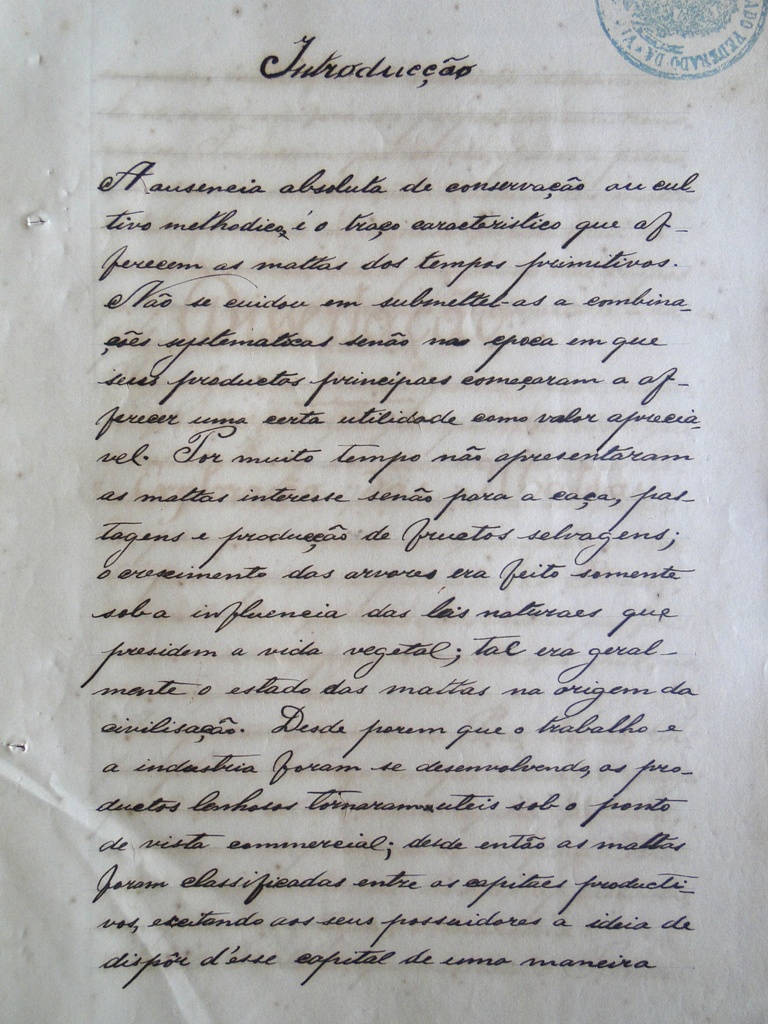 ADO FEDERADO DA VI
Introducção
A ausencia absoluta de conservação ou cul-
tivo methodico, é o traço caracteristico que of-
ferecem as mattas dos tempos primitivos.
Não se cuidou em submettel-as a combina-
ções systematicas senão na epoca em que
seus productos principaes começaram a of-
ferecer uma certa utilidade como valor aprecia-
vel. Por muito tempo não apresentaram
as mattas interesse senão para a caça, pas-
tagens e producção de fructos selvagens;
o crescimento das arvores era feito somente
sob a influencia das leis naturaes que
presidem a vida vegetal; tal era geral-
mente o estado das mattas na origem da
civilisação. Desde porem que o trabalho e
a industria foram se desenvolvendo, os pro-
ductos lenhosos tornaram uteis sob o ponto
de vista commercial; desde então as mattas
foram classificadas entre os capitaes producti-
vos, excitando aos seus possuidores a ideia de
dispôr d'esse capital de uma maneira